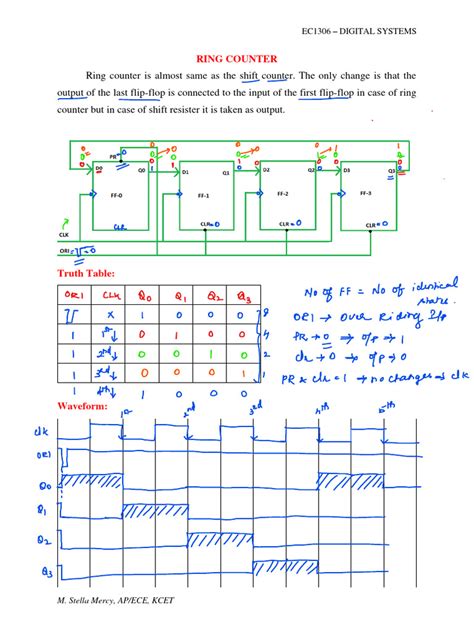 EC1306 – DIGITAL SYSTEMS
RING COUNTER
Ring counter is almost same as the shift counter. The only change is that the
output of the last flip-flop is connected to the input of the first flip-flop in case of ring
counter but in case of shift resister it is taken as output.
PR=0
D0 Q0 D1 Q1 D2 Q2 D3 Q3
FF-0 FF-1 FF-2 FF-3
CLR CLR=0 CLR=0 CLR=0
CLK
ORI =0
Truth Table:
ORI CLK Q0 Q1 Q2 Q3
X 1 0 0 0 8
1 1st↓ 0 1 0 0 4
1 2nd↓ 0 0 1 0 2
1 3rd↓ 0 0 0 1 1
1 4th↓ 1 0 0 0
No of FF = No of identical
state.
ORI → Over Riding I/p
PR → 0 ⇒ o/p → 1
clr → 0 ⇒ o/p → 0
PR & clr = 1 → no changes ⇒ clk
Waveform:
1st 2nd 3rd 4th 5th
clk
ORI
Q0
Q1
Q2
Q3
M. Stella Mercy, AP/ECE, KCET